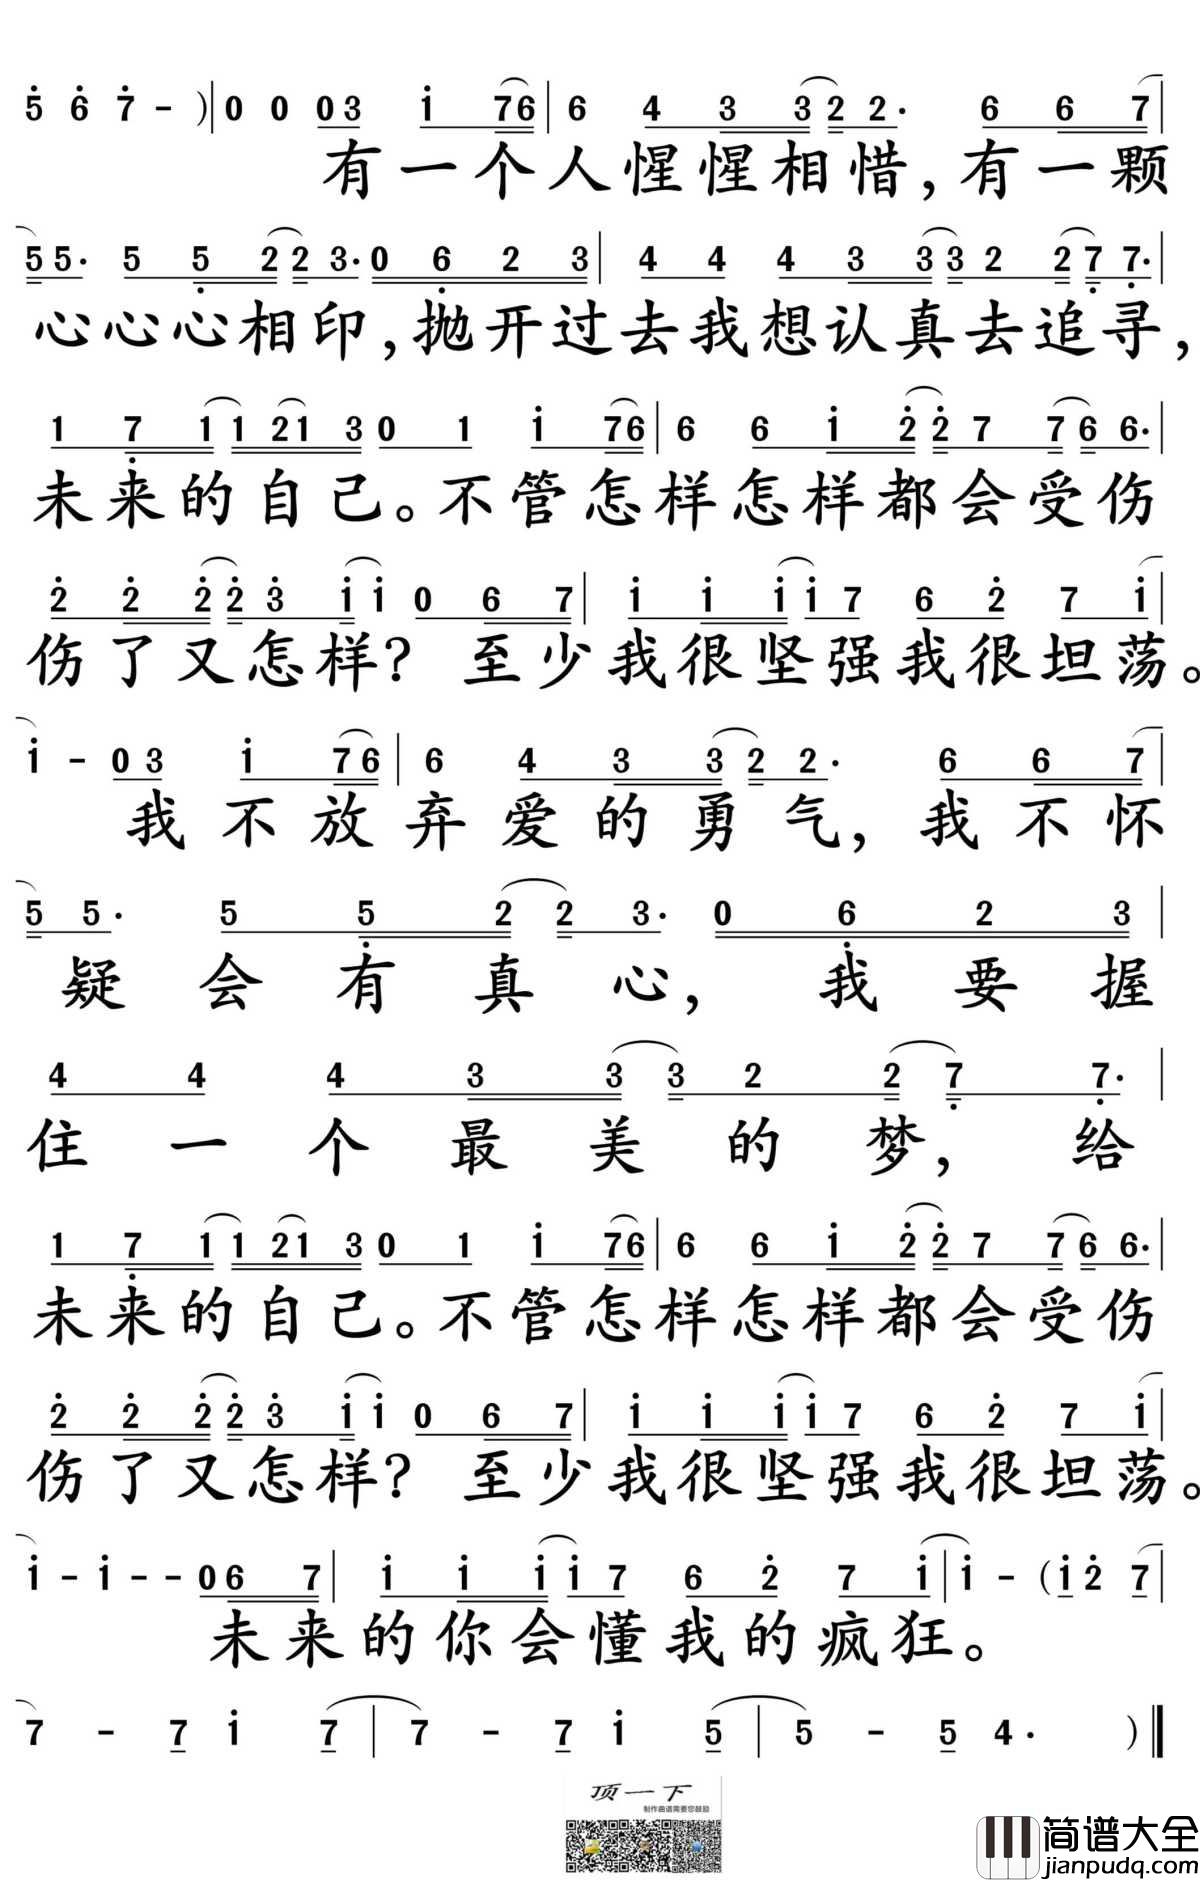 5 6 7 - )| 0 0 03 1 76 | 6 4 3 32 2. 6 6 7 |
有一个人惺惺相惜,有一颗
55. 5 5 22 3. 0 6 2 3 | 4 4 4 3 33 2 27 7. |
心心心相印,抛开过去我想认真去追寻,
1 7 11 21 3 0 1 1 76 | 6 6 1 22 7 76 6. |
未来的自己。不管怎样怎样都会受伤
2 2 22 3 11 0 6 7 | 1 1 11 7 6 2 7 1 |
伤了又怎样? 至少我很坚强我很坦荡。
1 - 03 1 76 | 6 4 3 32 2. 6 6 7 |
我不放弃爱的勇气,我不怀
5 5. 5 5 2 2 3. 0 6 2 3 |
疑会有真心,我要握
4 4 4 3 3 3 2 2 7 7. |
住一个最美的梦,给
1 7 11 21 3 0 1 1 76 | 6 6 1 22 7 76 6. |
未来的自己。不管怎样怎样都会受伤
2 2 22 3 11 0 6 7 | 1 1 11 7 6 2 7 1 |
伤了又怎样? 至少我很坚强我很坦荡。
1 - 1 - - 06 7 | 1 1 11 7 6 2 7 1 | 1 - (1 2 7 |
未来的你会懂我的疯狂。
7 - 7 1 7 | 7 - 7 1 5 | 5 - 5 4. )‖
顶一下
制作曲谱需要您鼓励
简谱大全
jianpudq.com